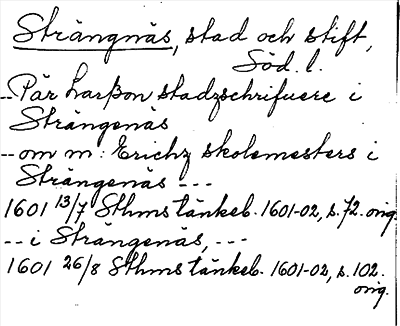 Strängnäs, stad och stift,
Söd. l.
-- Pär Larßon stadzschrifuere i
Strängenäs
-- om m: Erichz skolemesters i
Strängenäs ---
1601 13/7 Sthms tänkeb. 1601-02, s. 72. orig.
-- i Strängenäs, ---
1601 26/8 Sthms tänkeb. 1601-02, s. 102.
orig.